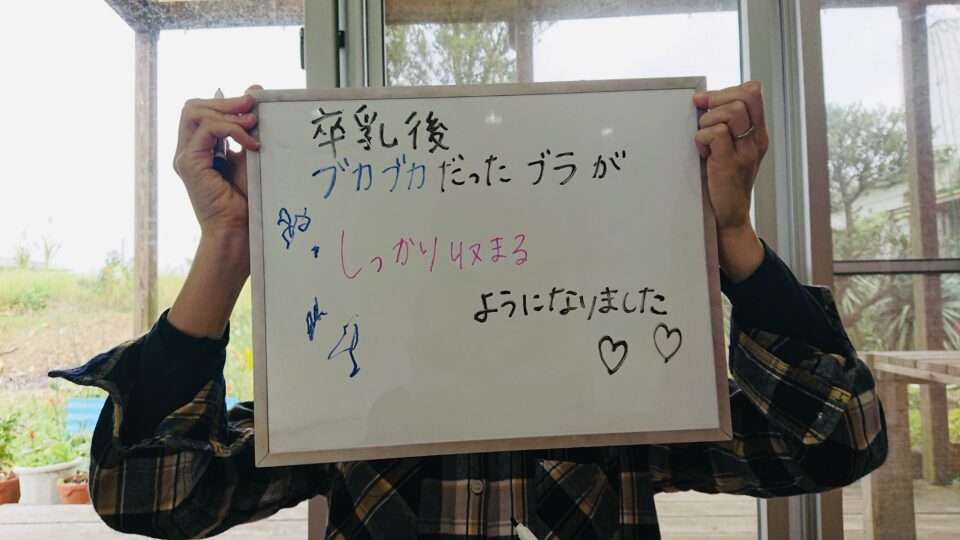 卒乳後
ブカブカだったブラが
しっかり収まる
ようになりました
♡♡